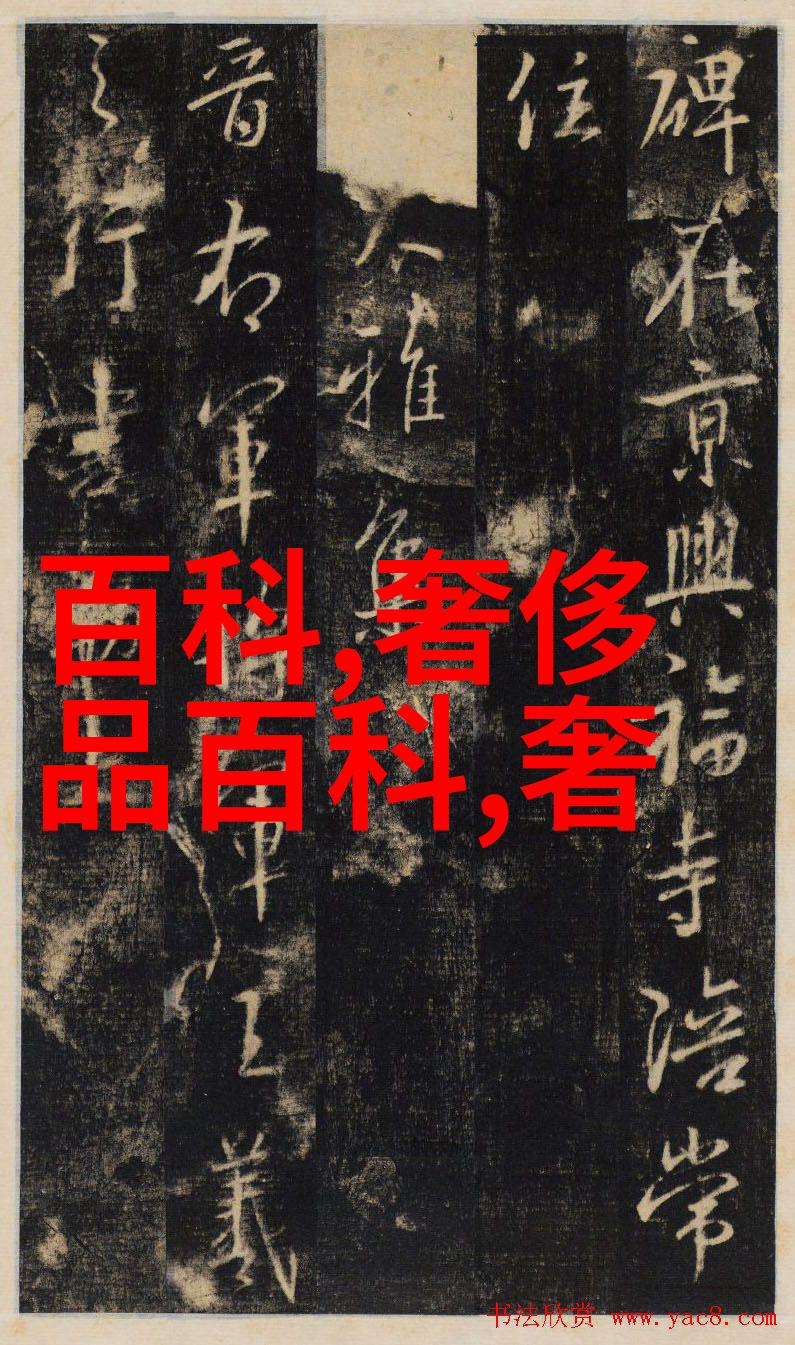 碑在京興福寺陪常
住
大雅集
晉右軍將軍王羲
之行書
百科,奢侈
品百科,奢
书法欣赏 www.yac8.com